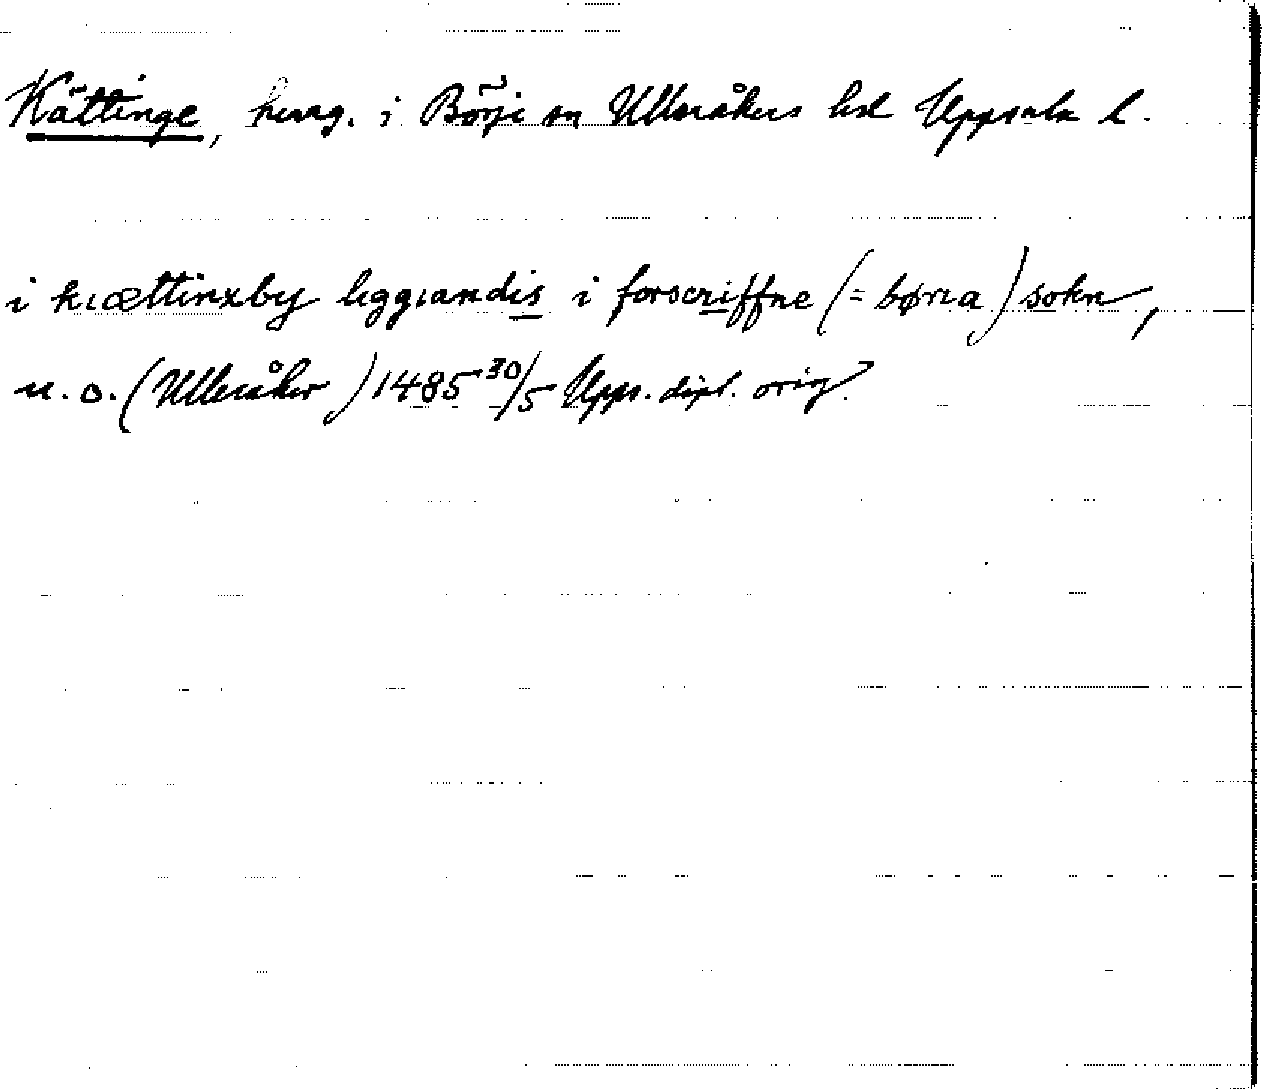 Kättinge, herrg. i Börje sn Ulleråkers hd Uppsala l.
i kıættinxby liggıandis i forscriffne (= børıa) sokn,
u. o. (Ulleråker) 1485 30/5 Upps. dipl. orig.